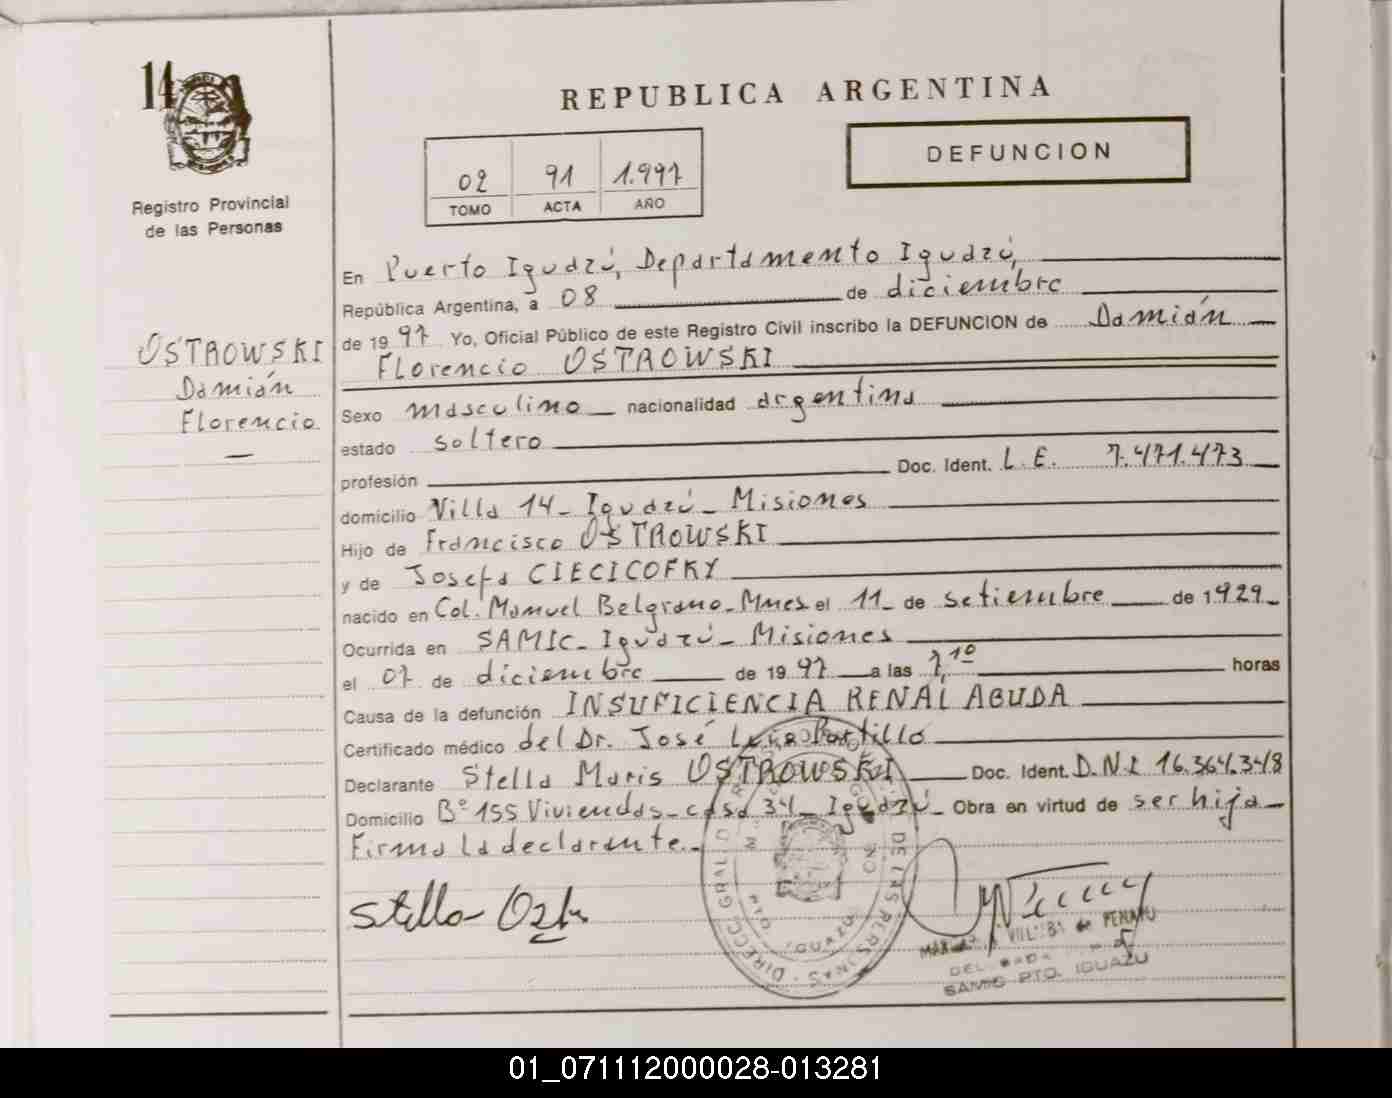 14
REPUBLICA ARGENTINA
DEFUNCION
02 91 1.997
TOMO ACTA AÑO
Registro Provincial
de las Personas
En Puerto Iguazú, Departamento Iguazú,
República Argentina, a 08 de diciembre
de 1997 Yo, Oficial Público de este Registro Civil inscribo la DEFUNCION de Damián
Florencio OSTROWSKI
OSTROWSKI
Damián
Florencio
Sexo masculino nacionalidad argentina
estado soltero
profesión Doc. Ident. L.E. 7.471.473
domicilio Villa 14 - Iguazú - Misiones
Hijo de Francisco OSTROWSKI
y de Josefa CIECICOFKY
nacido en Col. Manuel Belgrano - Mnes el 11 de setiembre de 1929
Ocurrida en SAMIC - Iguazú - Misiones
el 07 de diciembre de 1997 a las 7,10 horas
Causa de la defunción INSUFICIENCIA RENAL AGUDA
Certificado médico del Dr. José Portillo
Declarante Stella Maris OSTROWSKI Doc. Ident. D.N.I. 16.364.348
Domicilio Bº 155 Viviendas - casa 34 - Iguazú - Obra en virtud de ser hija
Firma la declarante.-
Stella
DE LAS PERSONAS
DIRECC. GRAL.
IGUAZU
SAMIC PTO. IGUAZU
01_071112000028-013281